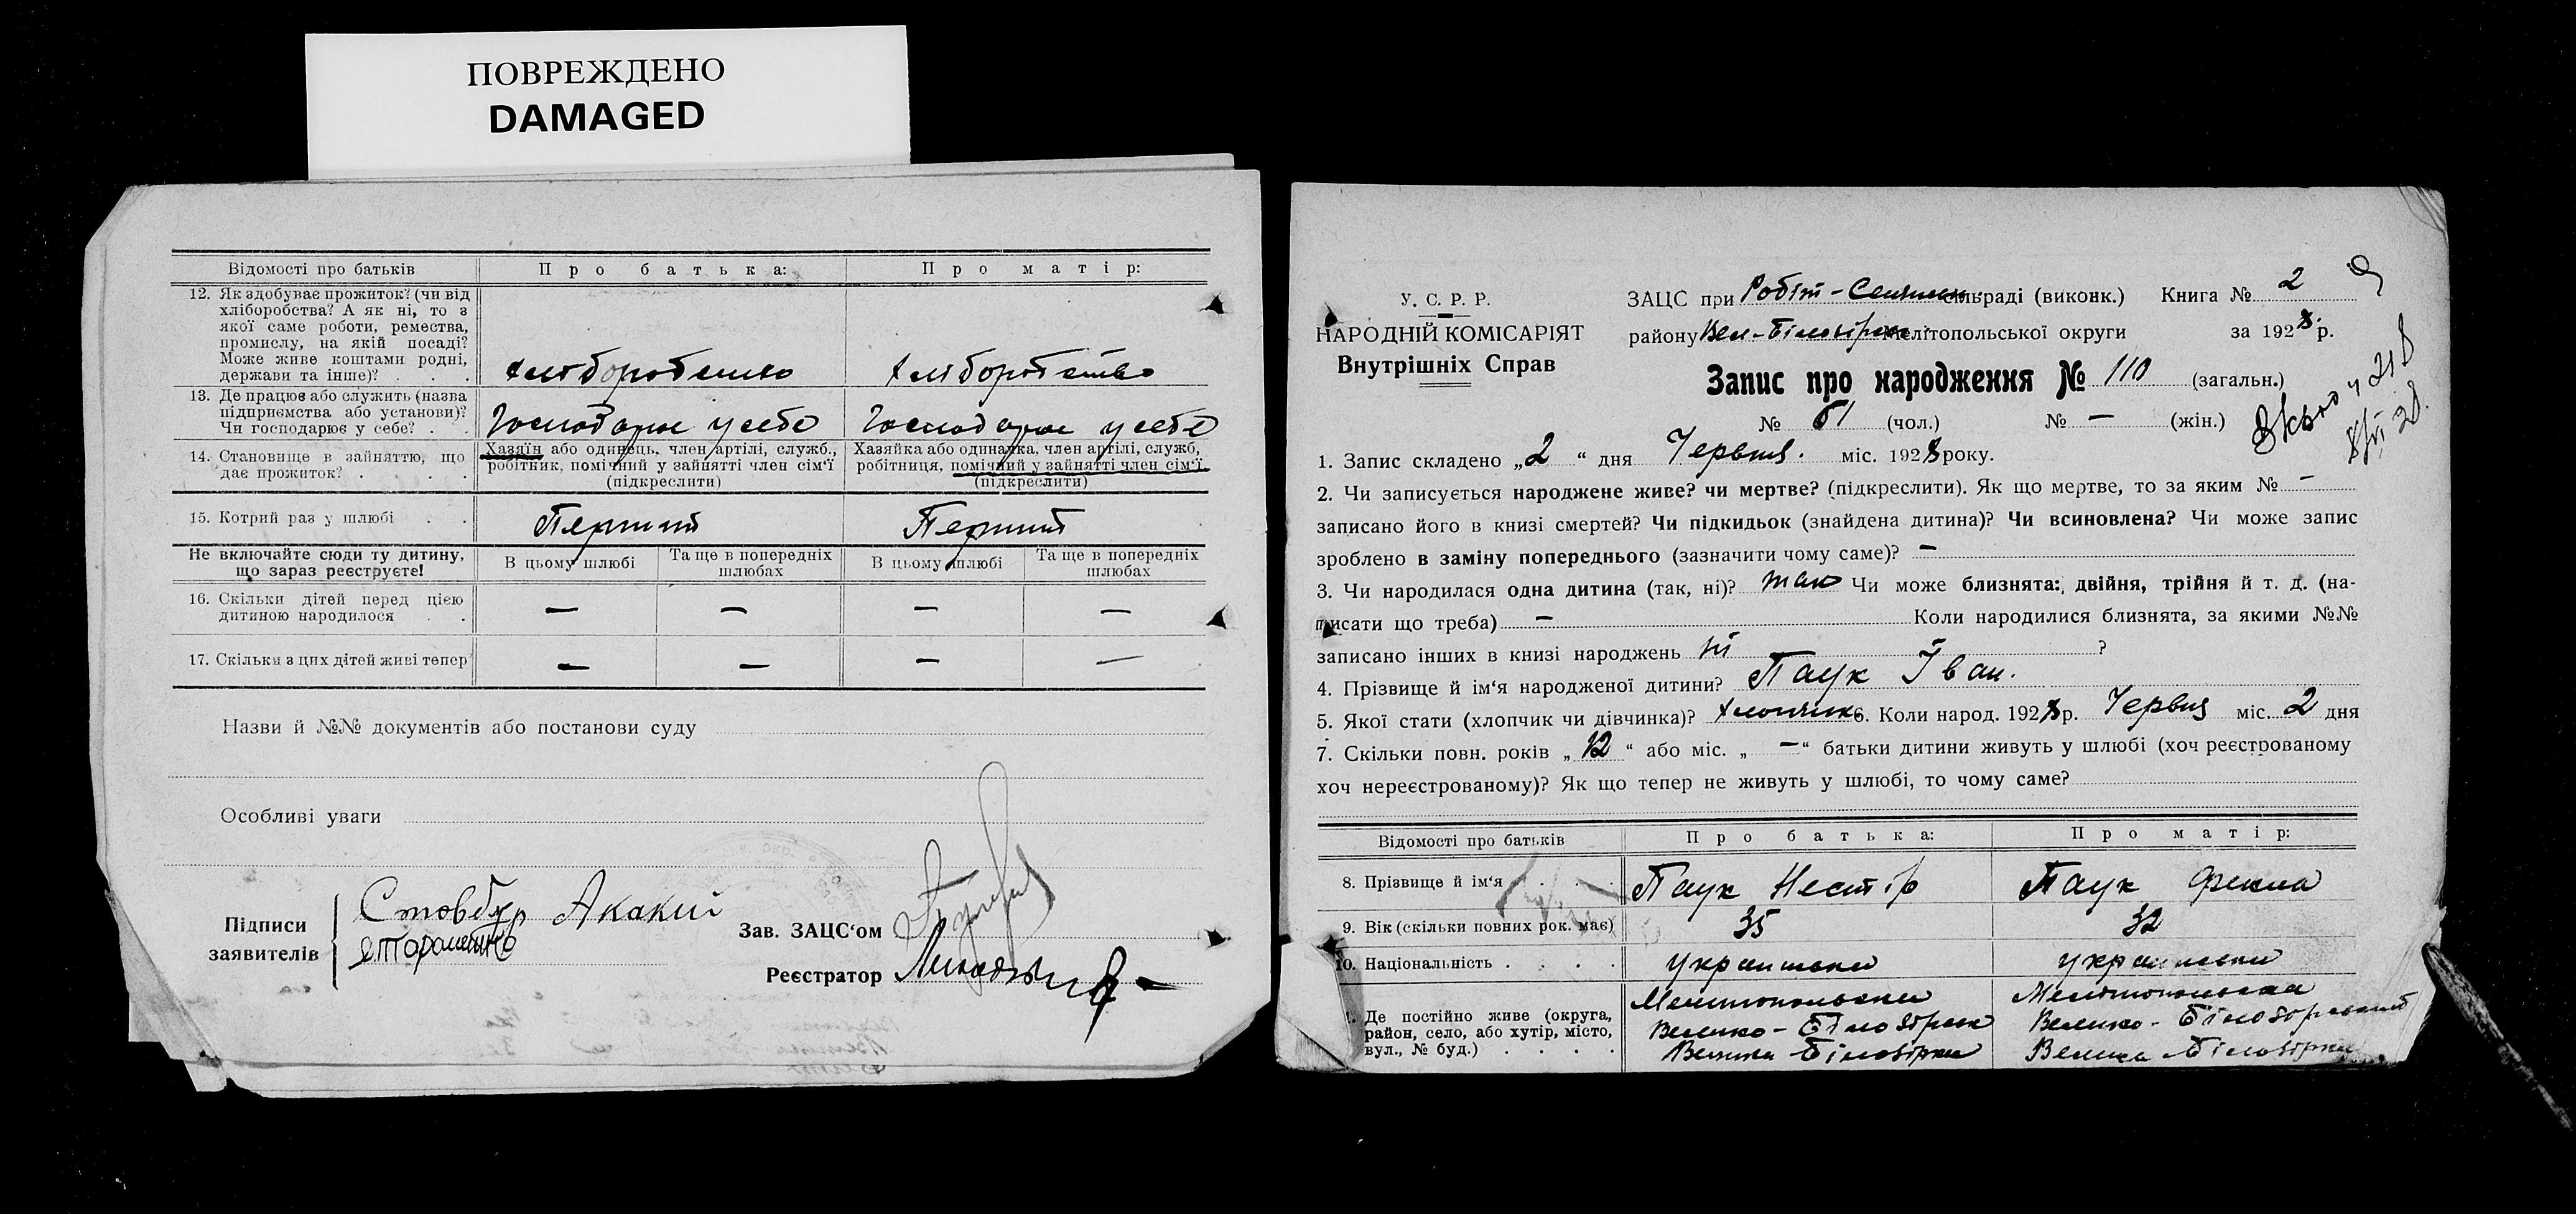 ПОВРЕЖДЕНО
DAMAGED
Відомості про батьків
Про батька:
Про матір:
12. Як здобуває прожиток? (чи від
хліборобства? А як ні, то з
якої саме роботи, ремества,
промислу, на якій посаді?
Може живе коштами родні,
держави та інше)? . . .
хліборобство
хліборобство
13. Де працює або служить (назва
підприємства або установи)?
Чи господарює у себе? . .
Господарює у себе
Господарює у себе
14. Становище в зайняттю, що
дає прожиток? . . . .
Хазяїн або одинець, член артілі, служб.,
робітник, помічний у зайнятті член сім'ї
(підкреслити)
Хазяйка або одиначка, член артілі, служб,
робітниця, помічний у зайнятті член сім'ї.
(підкреслити)
15. Котрий раз у шлюбі . .
Перший
Перший
Не включайте сюди ту дитину,
що зараз реєструєте!
В цьому шлюбі
Та ще в попередніх
шлюбах
В цьому шлюбі
Та ще в попередніх
шлюбах
16. Скільки дітей перед цією
дитиною народилося . .
— — — —
17. Скільки з цих дітей живі тепер
— — — —
Назви й №№ документів або постанови суду
Особливі уваги
Підписи
заявителів
Стовбур Акакій
Зав. ЗАЦС'ом
Реєстратор
У. С. Р. Р.
НАРОДНІЙ КОМІСАРІЯТ
Внутрішніх Справ
ЗАЦС при Робіт-Селянск сільраді (виконк.) Книга № 2
району Вел-Білозірск Мелітопольської округи за 1928 р.
Запис про народження № 110 (загальн.)
№ 61 (чол.) № — (жін.)
1. Запис складено „2“ дня Червня. міс. 1928 року.
2. Чи записується народжене живе? чи мертве? (підкреслити). Як що мертве, то за яким № —
записано його в книзі смертей? Чи підкидьок (знайдена дитина)? Чи всиновлена? Чи може запис
зроблено в заміну попереднього (зазначити чому саме)? —
3. Чи народилася одна дитина (так, ні)? так Чи може близнята: двійня, трійня й т. д. (на-
писати що треба) — Коли народилися близнята, за якими №№
записано інших в книзі народжень ні ?
4. Прізвище й ім'я народженої дитини? Паук Іван.
5. Якої стати (хлопчик чи дівчинка)? хлопчик 6. Коли народ. 1928 р. Червня міс. 2 дня
7. Скільки повн. років „12“ або міс. „—“ батьки дитини живуть у шлюбі (хоч реєстрованому
хоч нереєстрованому)? Як що тепер не живуть у шлюбі, то чому саме?
Відомості про батьків
Про батька:
Про матір:
8. Прізвище й ім'я . . . .
Паук Нестір
Паук Фекла
9. Вік (скільки повних рок. має)
35
32
10. Національність . . . .
українська
українська
Де постійно живе (округа,
район, село, або хутір, місто,
вул., № буд.) . . . .
Мелітопольська
Велико-Білозірск
Велика Білозірка
Мелітопольська
Велико-Білозорський
Велика Білозірка